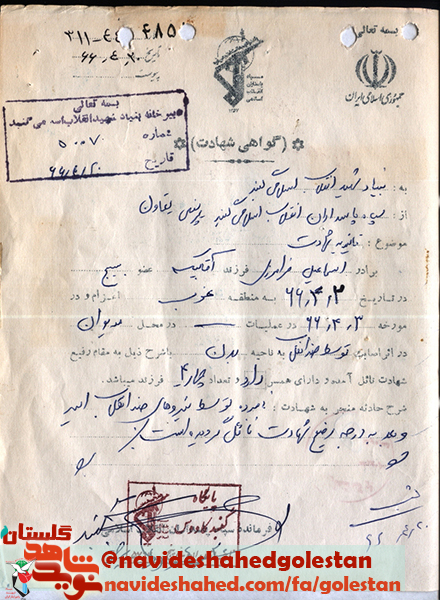 بسمه تعالی
جمهوری اسلامی ایران
سپاه پاسداران انقلاب اسلامی
تاریخ
پیوست
بسمه تعالی
دبیرخانه بنیاد شهید انقلاب اسلامی گنبد
شماره ۵۰۰۷۰
تاریخ
(گواهی شهادت)
به : بنیاد شهید انقلاب اسلامی گنبد
از : سپاه پاسداران انقلاب اسلامی گنبد پرسنلی تعاون
موضوع : تائیدیه شهادت
برادر اسماعیل فرزند عضو بسیج
در تاریخ ۶۶،۴،۲ به منطقه غرب اعزام و در
مورخه ۶۶،۴،۳ در عملیات — در محل مریوان
در اثر اصابت توسط ضد انقلاب به ناحیه بدن باشرح ذیل به مقام رفیع
شهادت نائل آمده و دارای همسر دارد و تعداد چهار ۴ فرزند میباشد.
شرح حادثه منجر به شهادت : نامبرده توسط نیروهای ضد انقلاب اسیر
و بعد به درجه رفیع شهادت نائل گردیده است
پایگاه
گنبد کاووس
فرمانده سپاه پاسداران انقلاب اسلامی
نوید شاهد گلستان
@navideshahedgolestan
navideshahed.com/fa/golestan